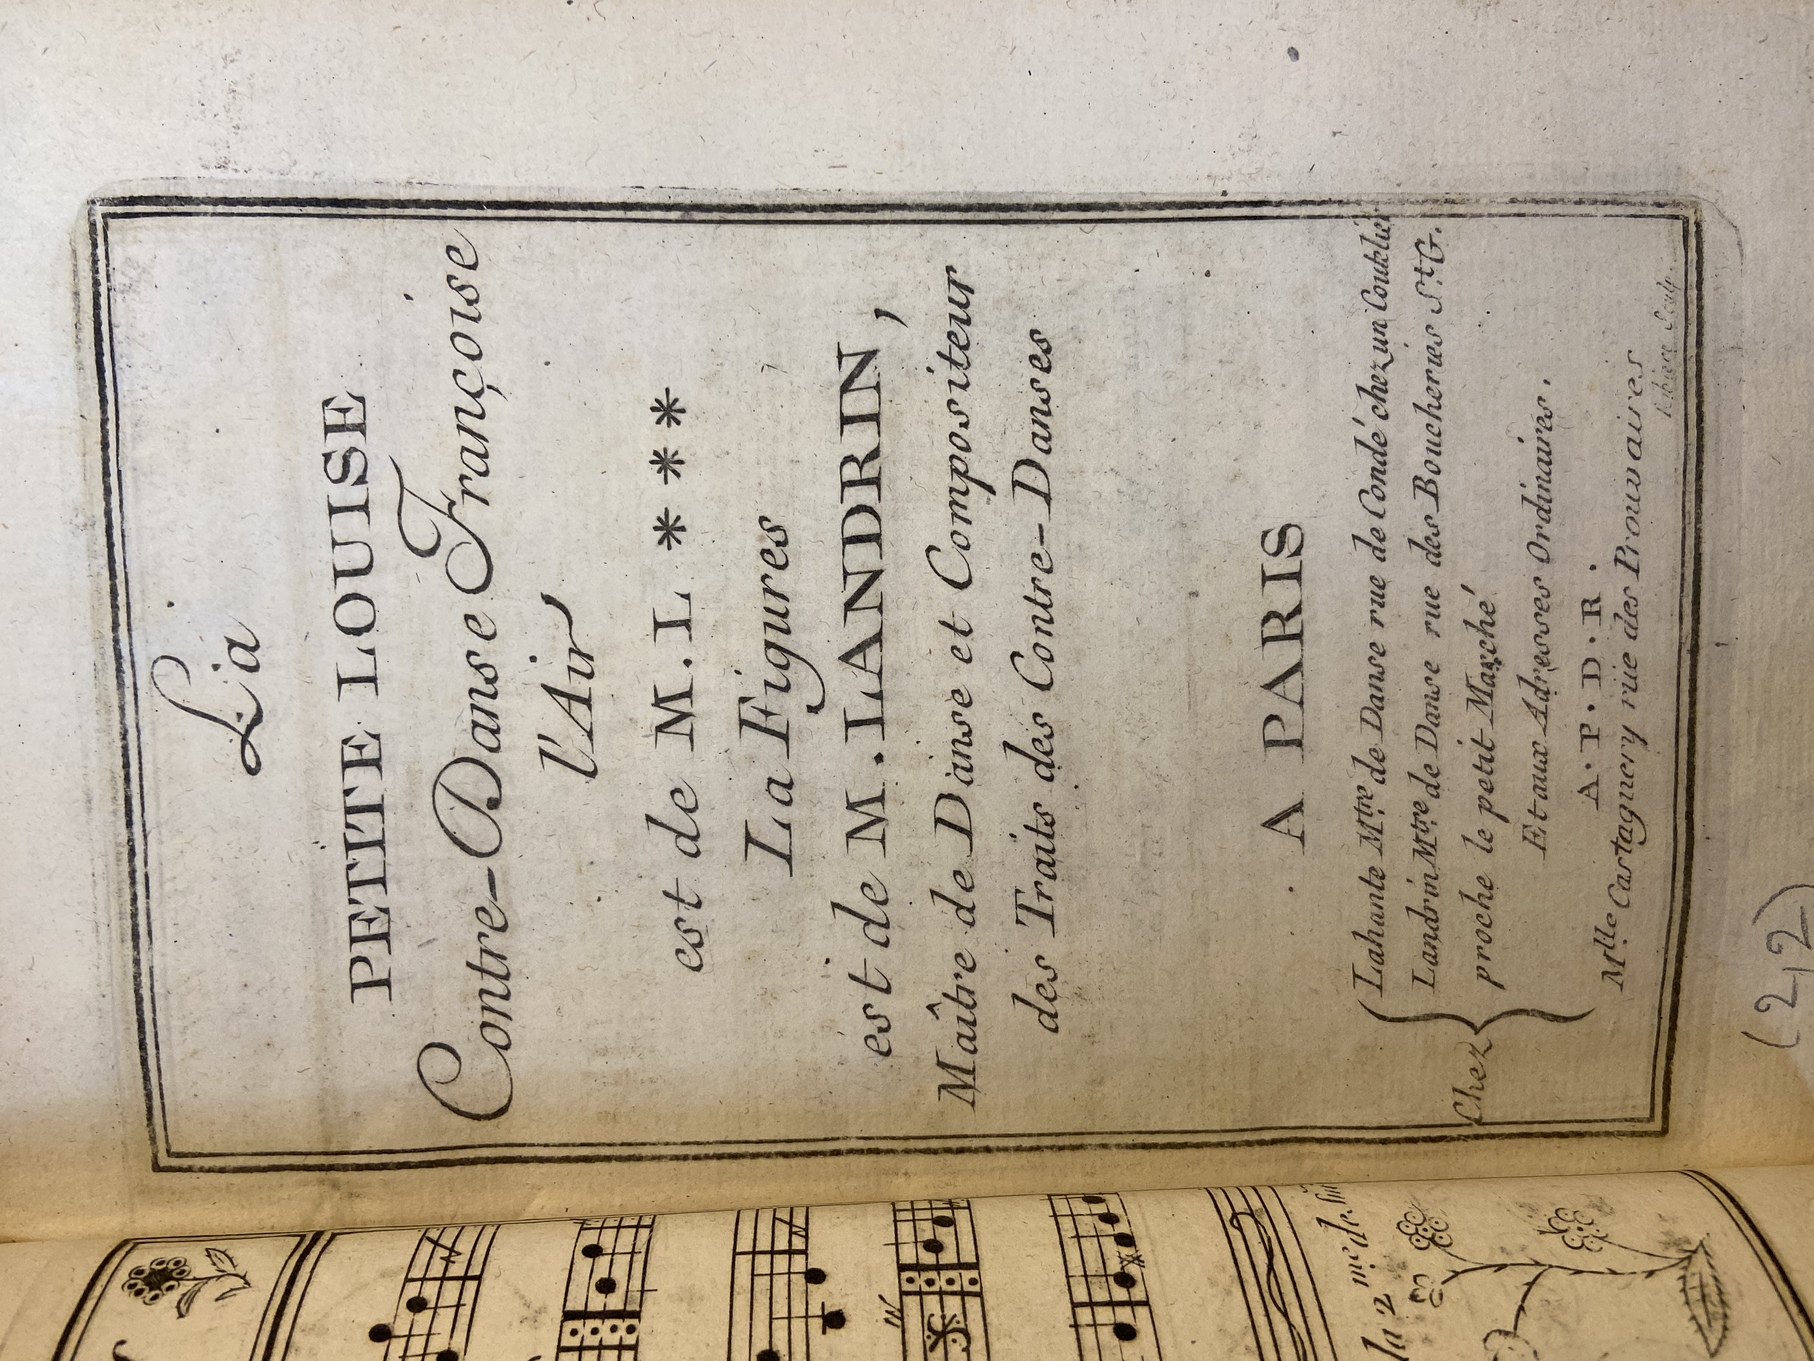 La
PETITE LOUISE
Contre-Danse Françoise
l'Air
est de M. L ***
La Figures
est de M. LANDRIN,
Maître de Danse et Compositeur
des Traits des Contre-Danses
A PARIS
Chez
Lahante Mtre de Danse rue de Condé chez un Coutelier
Landrin Mtre de Danse rue des Boucheries St. G.
proche le petit Marché
Et aux Adresses Ordinaires.
A. P. D. R.
Mlle Castagnery rue des Prouvaires
Sculp.
(22)
la 2me de